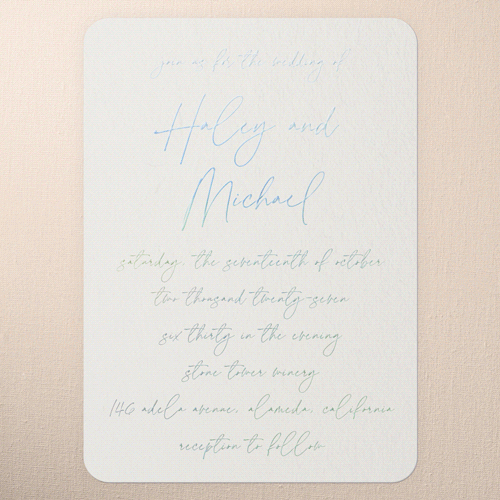 join us for the wedding of
Haley and
Michael
saturday, the seventeenth of october
two thousand twenty-seven
six thirty in the evening
stone tower winery
146 adela avenue, alameda, california
reception to follow